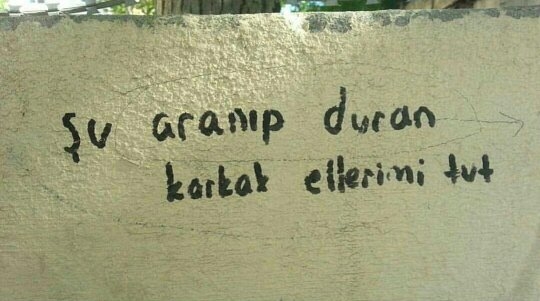 şu aranıp duran
korkak ellerimi tut